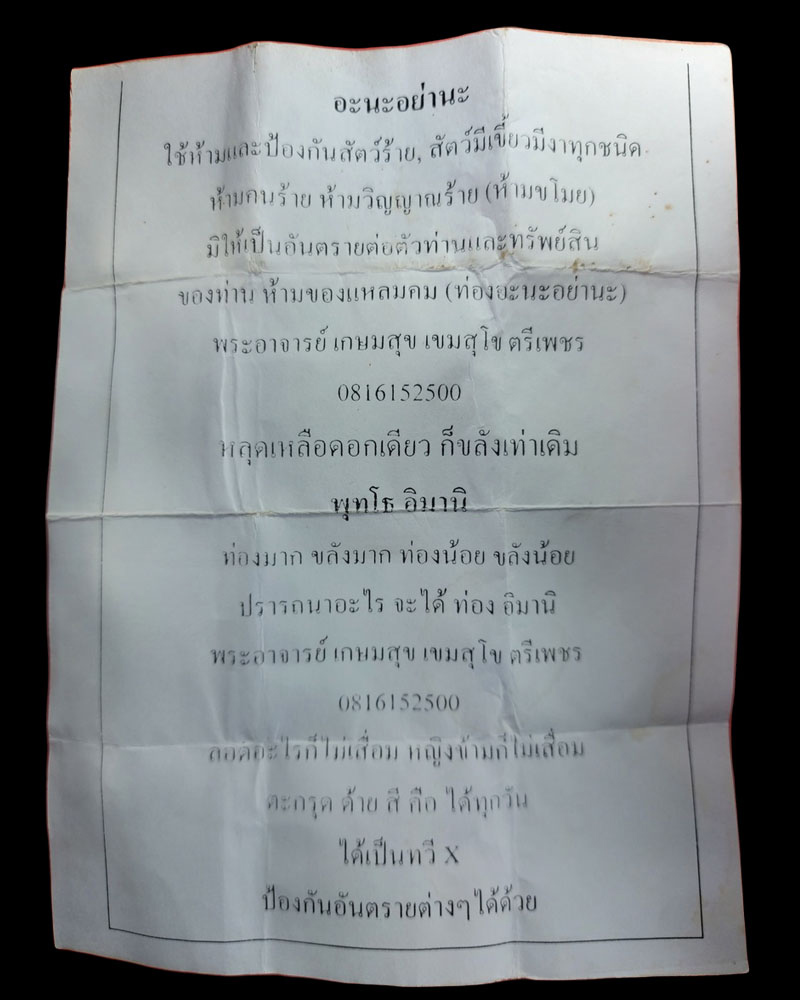 อะนะอย่านะ
ใช้ห้ามและป้องกันสัตว์ร้าย, สัตว์มีเขี้ยวมีงาทุกชนิด
ห้ามคนร้าย ห้ามวิญญาณร้าย (ห้ามขโมย)
มิให้เป็นอันตรายต่อตัวท่านและทรัพย์สิน
ของท่าน ห้ามของแหลมคม (ท่องอะนะอย่านะ)
พระอาจารย์ เกษมสุข เขมสุโข ตรีเพชร
0816152500
หลุดเหลือดอกเดียว ก็ขลังเท่าเดิม
พุทโธ อิมานิ
ท่องมาก ขลังมาก ท่องน้อย ขลังน้อย
ปรารถนาอะไร จะได้ ท่อง อิมานิ
พระอาจารย์ เกษมสุข เขมสุโข ตรีเพชร
0816152500
ลอดอะไรก็ไม่เสื่อม หญิงข้ามก็ไม่เสื่อม
ตะกรุด ด้าย สี คือ ได้ทุกวัน
ได้เป็นทวี X
ป้องกันอันตรายต่างๆ ได้ด้วย